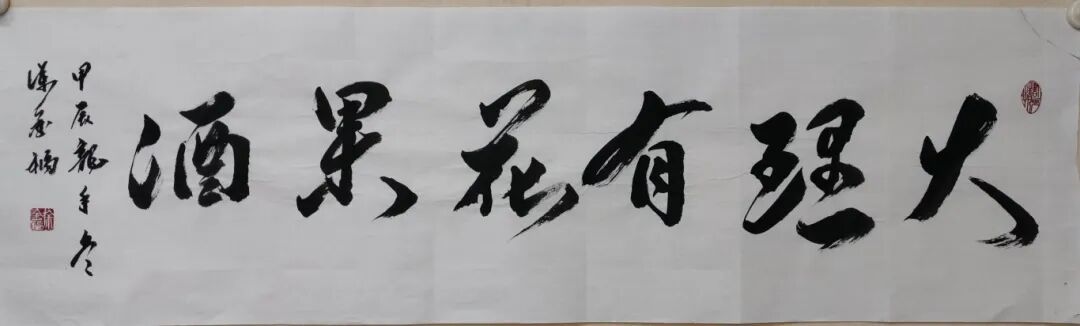 大理有花果酒
甲辰龙年冬